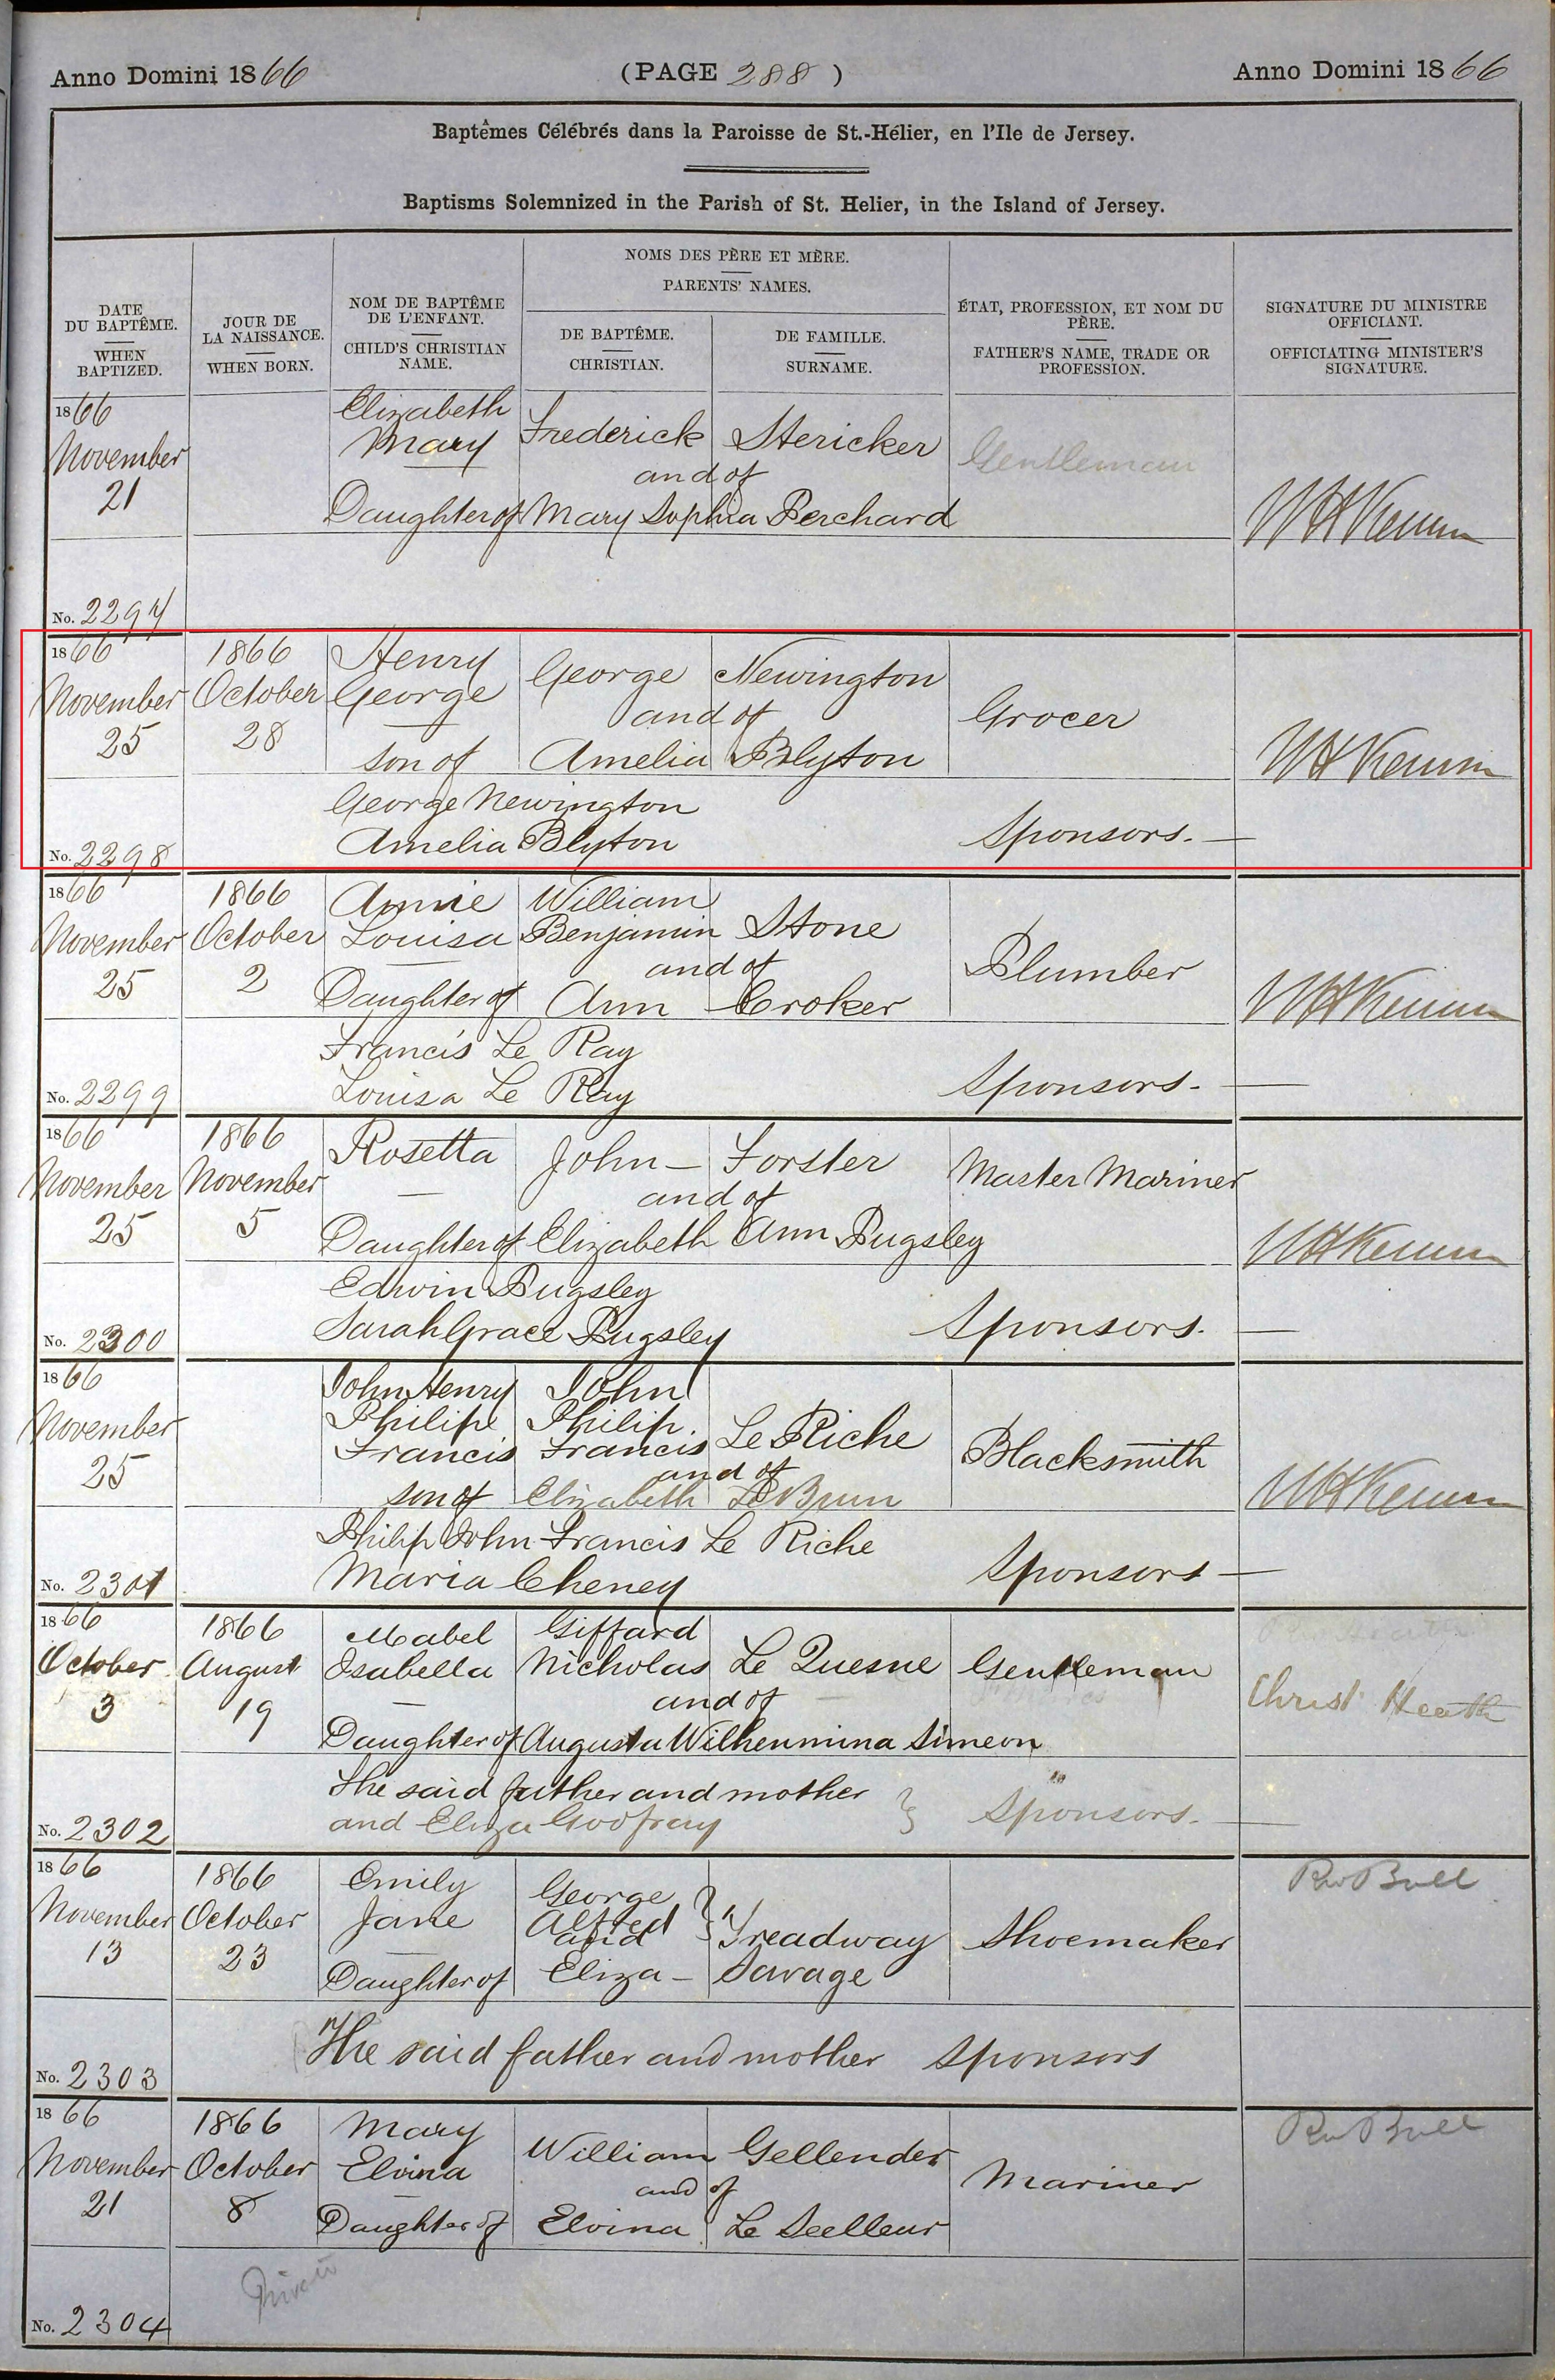 Anno Domini 1866
(PAGE 288)
Anno Domini 1866
Baptêmes Célébrés dans la Paroisse de St.-Hélier, en l'Ile de Jersey.
Baptisms Solemnized in the Parish of St. Helier, in the Island of Jersey.
DATE
DU BAPTÊME.
WHEN
BAPTIZED.
JOUR DE
LA NAISSANCE.
WHEN BORN.
NOM DE BAPTÊME
DE L'ENFANT.
CHILD'S CHRISTIAN
NAME.
NOMS DES PÈRE ET MÈRE.
PARENTS' NAMES.
DE BAPTÊME.
CHRISTIAN.
DE FAMILLE.
SURNAME.
ÉTAT, PROFESSION, ET NOM DU
PÈRE.
FATHER'S NAME, TRADE OR
PROFESSION.
SIGNATURE DU MINISTRE
OFFICIANT.
OFFICIATING MINISTER'S
SIGNATURE.
1866
November
21
No. 2297
Elizabeth
Mary
Daughter of
Frederick Stericker
and of
Mary Sophia Perchard
Gentleman
1866
November
25
No. 2298
1866
October
28
Henry
George
son of
George Newington
and of
Amelia Blyton
Grocer
George Newington
Amelia Blyton
Sponsors.
1866
November
25
No. 2299
1866
October
2
Annie
Louisa
Daughter of
William
Benjamin Stone
and of
Ann Croker
Plumber
Francis Le Ray
Louisa Le Ray
Sponsors.
1866
November
25
No. 2300
1866
November
5
Rosetta
Daughter of
John Forster
and of
Elizabeth Ann Pugsley
Master Mariner
Edwin Pugsley
Sarah Grace Pugsley
Sponsors.
1866
November
25
No. 2301
John Henry
Philip
Francis
son of
John
Philip
Francis Le Riche
and of
Elizabeth Le Brun
Blacksmith
Philip John Francis Le Riche
Maria Cheney
Sponsors
1866
October
3
No. 2302
1866
August
19
Mabel
Isabella
Daughter of
Giffard
Nicholas Le Quesne
and of
Augusta Wilhenmina Simeon
Gentleman
Christ. Heath
The said father and mother
and Eliza Godfray
Sponsors.
1866
November
13
No. 2303
1866
October
23
Emily
Jane
Daughter of
George
Alfred Treadway
and
Eliza Savage
Shoemaker
Rev Bull
The said father and mother Sponsors
1866
November
21
No. 2304
1866
October
8
Mary
Elvina
Daughter of
William Gellender
and of
Elvina Le Seelleur
Mariner
Rev Bull